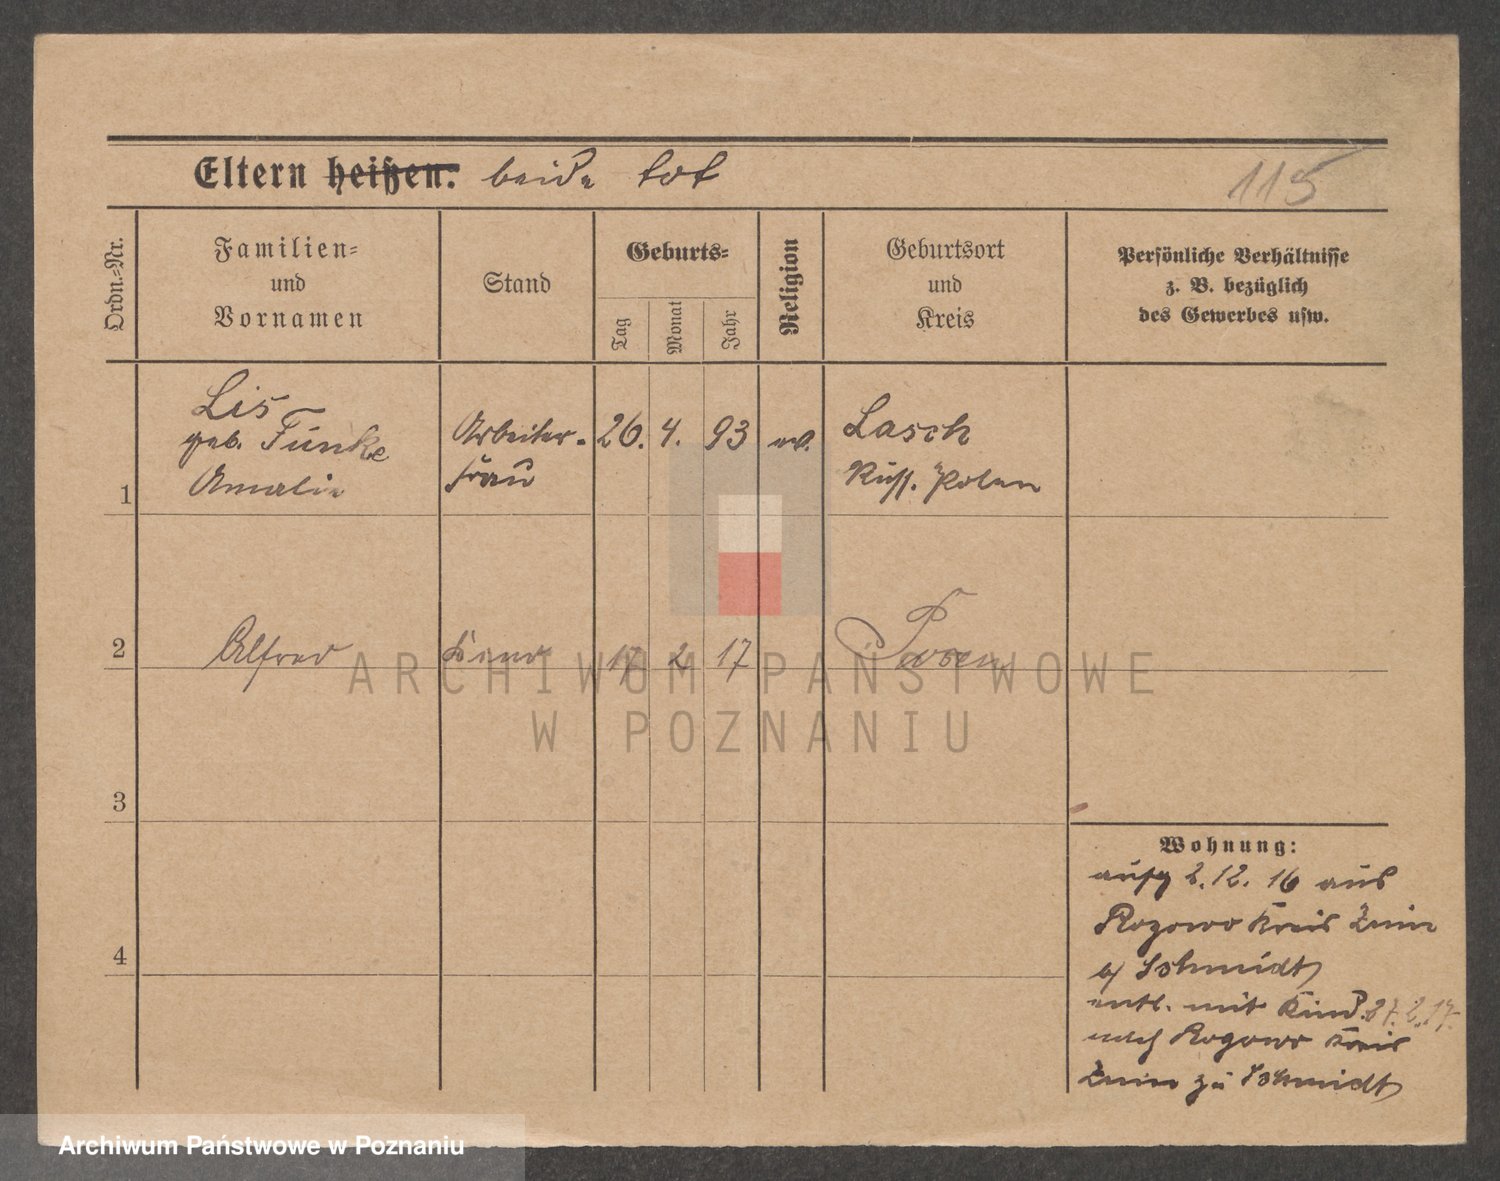 Eltern heißen: beide tot
115
Ordn.-Nr.
Familien-
und
Vornamen
Stand
Geburts-
Tag
Monat
Jahr
Religion
Geburtsort
und
Kreis
Persönliche Verhältnisse
z. B. bezüglich
des Gewerbes usw.
1
Lis
geb. Funke
Amalie
Arbeiter-
frau
26. 4. 93
ev.
Lasch
Russ. Polen
2
Alfred
Kind
17 2 17
Posen
3
4
Wohnung:
aufg 2. 12. 16 aus
Rogowo Kreis Znin
b/ Schmidt
entl. mit Kind 27. 2. 17.
nach Rogowo Kreis
Znin zu Schmidt
ARCHIWUM PAŃSTWOWE
W POZNANIU
Archiwum Państwowe w Poznaniu